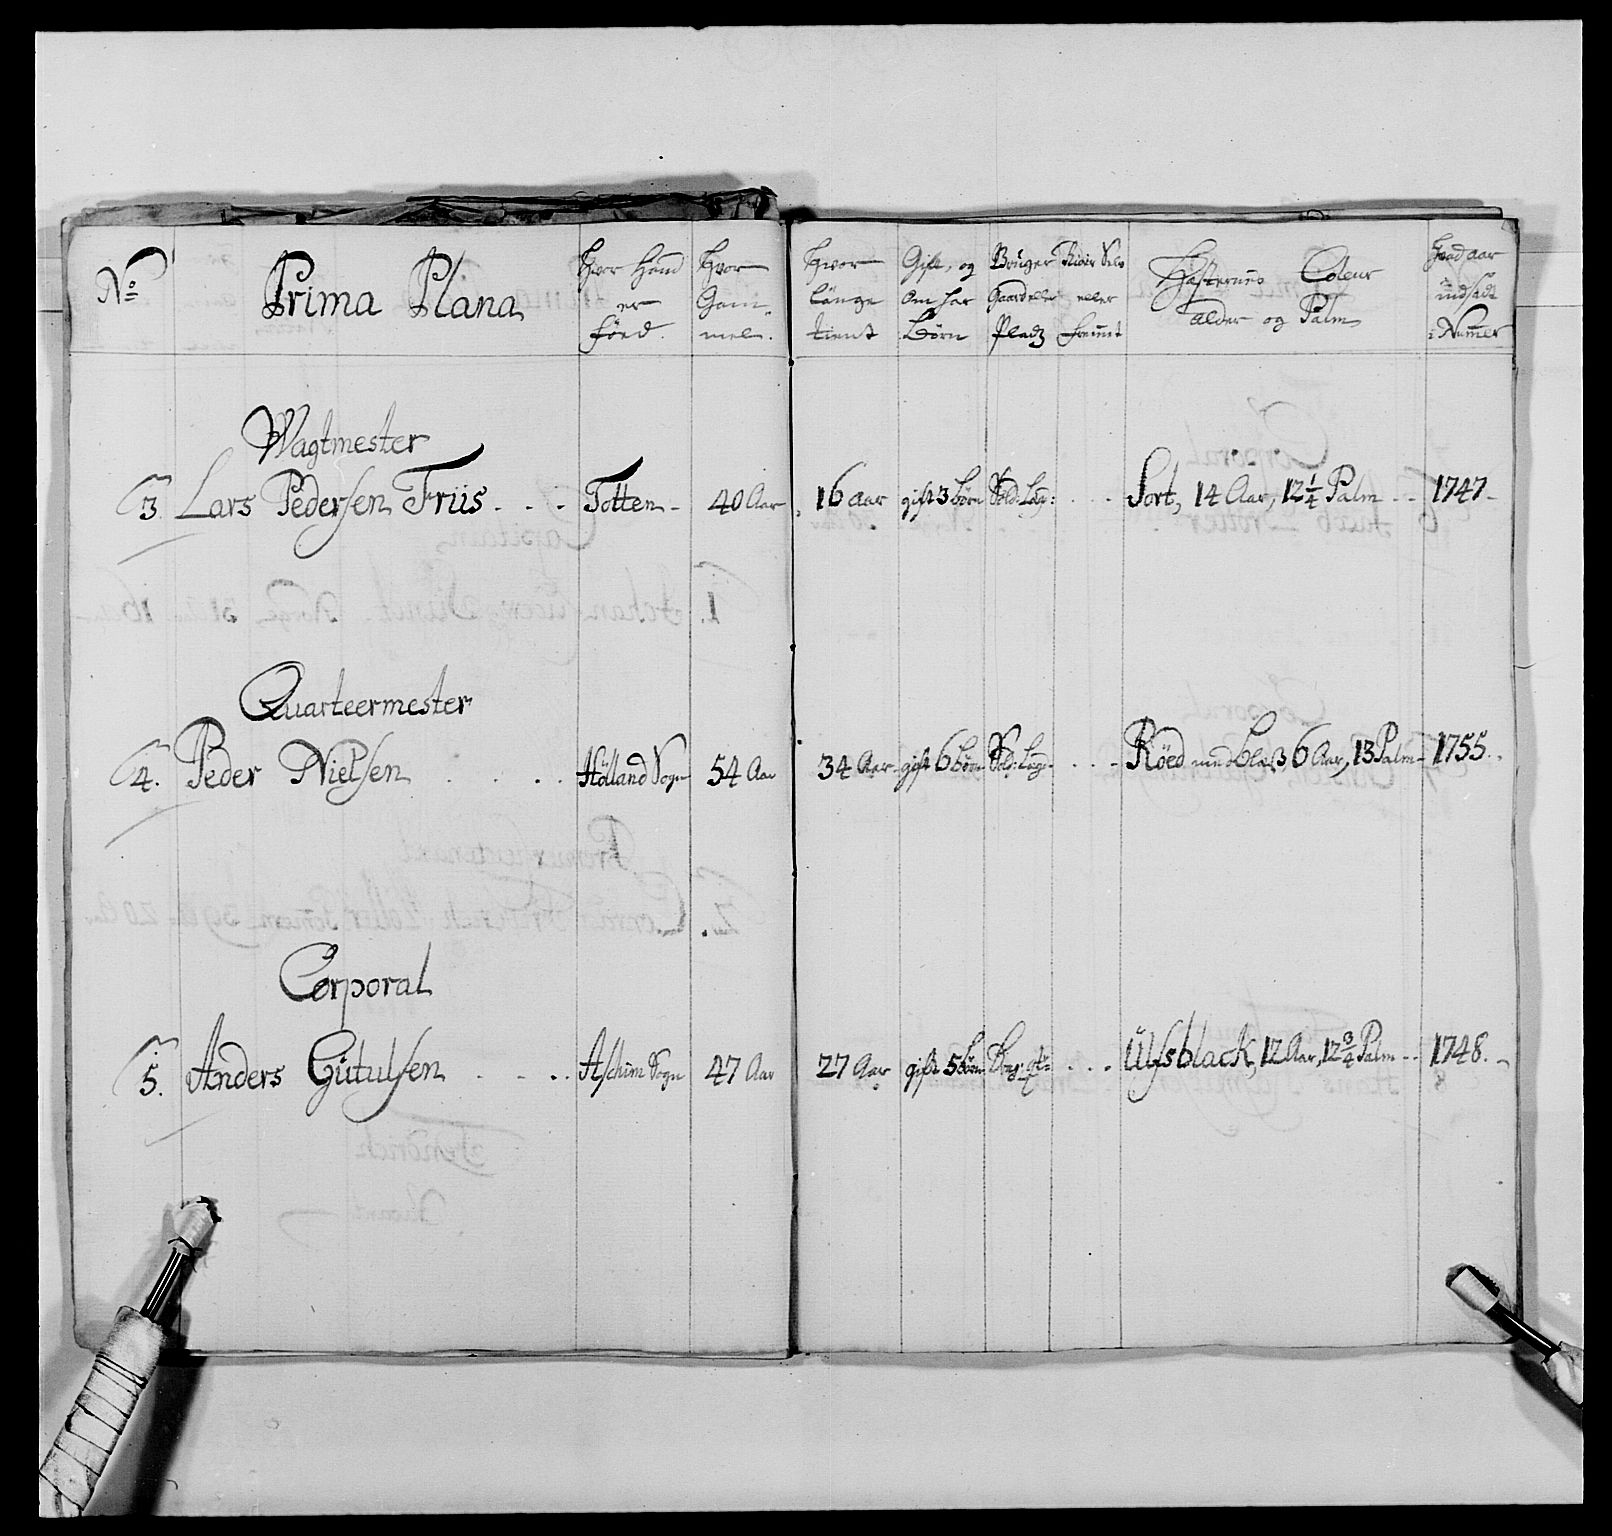 No
Prima Plana
Hvor Hand er föed.
Hvor Gammel.
Hvor länge tient
Gift, og Om har Börn
Bruger Gaard eller Pladz
Ridir Selv eller fremmet
Hästernes Coleur Alder og Palm
Hvad aar indsadt i Nummer
Wagtmester
3. Lars Pedersen Friis . . . Totten - 40 Aar 16 aar gift 3 börn Sold: Lag: . . . Sort, 14 Aar, 12 1/4 Palm - - 1747 -
Quarteermester
4. Peder Nielsen . . . . Hölland Sogn 54 Aar 34 Aar gift 6 börn Sold: Lag: . . . Röed med bles 6 Aar, 13 Palm - 1755.
Corporal
5. Anders Gütulsen . . . . Aschim Sogn 47 Aar 27 Aar gift 5 börn . . . Ulfsblack, 12 Aar, 12 3/4 Palm - - 1748. -